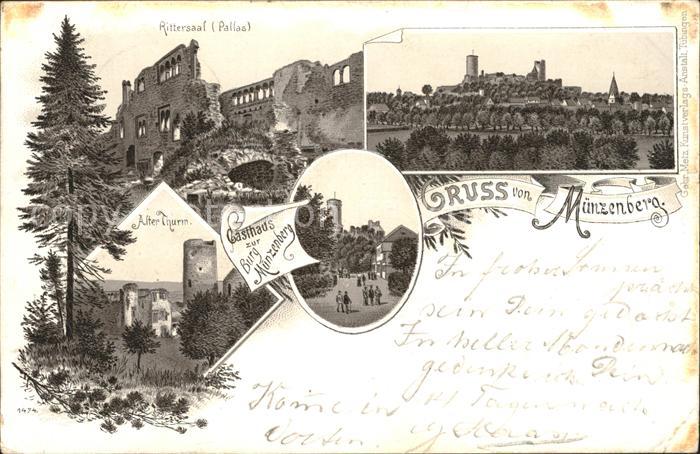 Rittersaal (Pallas)
Gebr. Metz Kunstverlags-Anstalt, Tübingen
GRUSS von Münzenberg.
Alter Thurm.
Gasthaus
zur
Burg
Münzenberg
In froher Sonnen
sein Dein gedacht
In heller Mondennacht
gedenke ich Dein
Komme in 14 Tagen nach
1474.